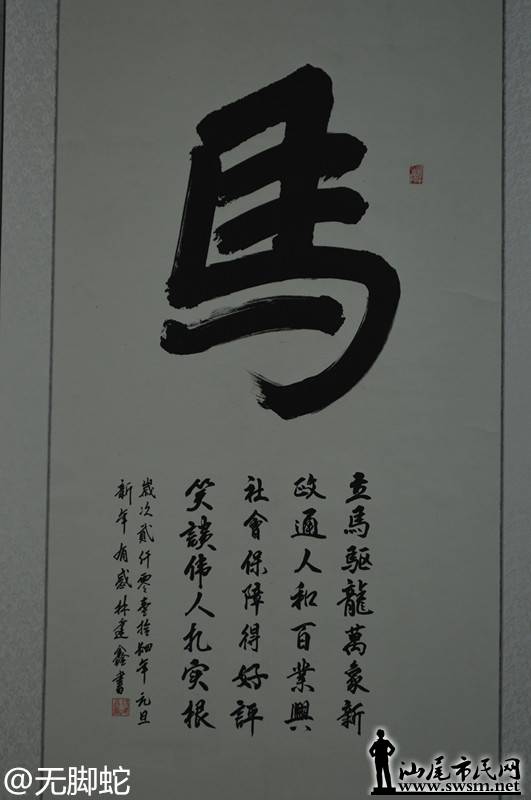 馬
立馬驅龍萬象新
政通人和百業興
社會保障得好評
笑談偉人扎实根
歲次貳仟零壹拾肆年元旦
新年有感林建鑫書
@无脚蛇
汕尾市民网
www.swsm.net